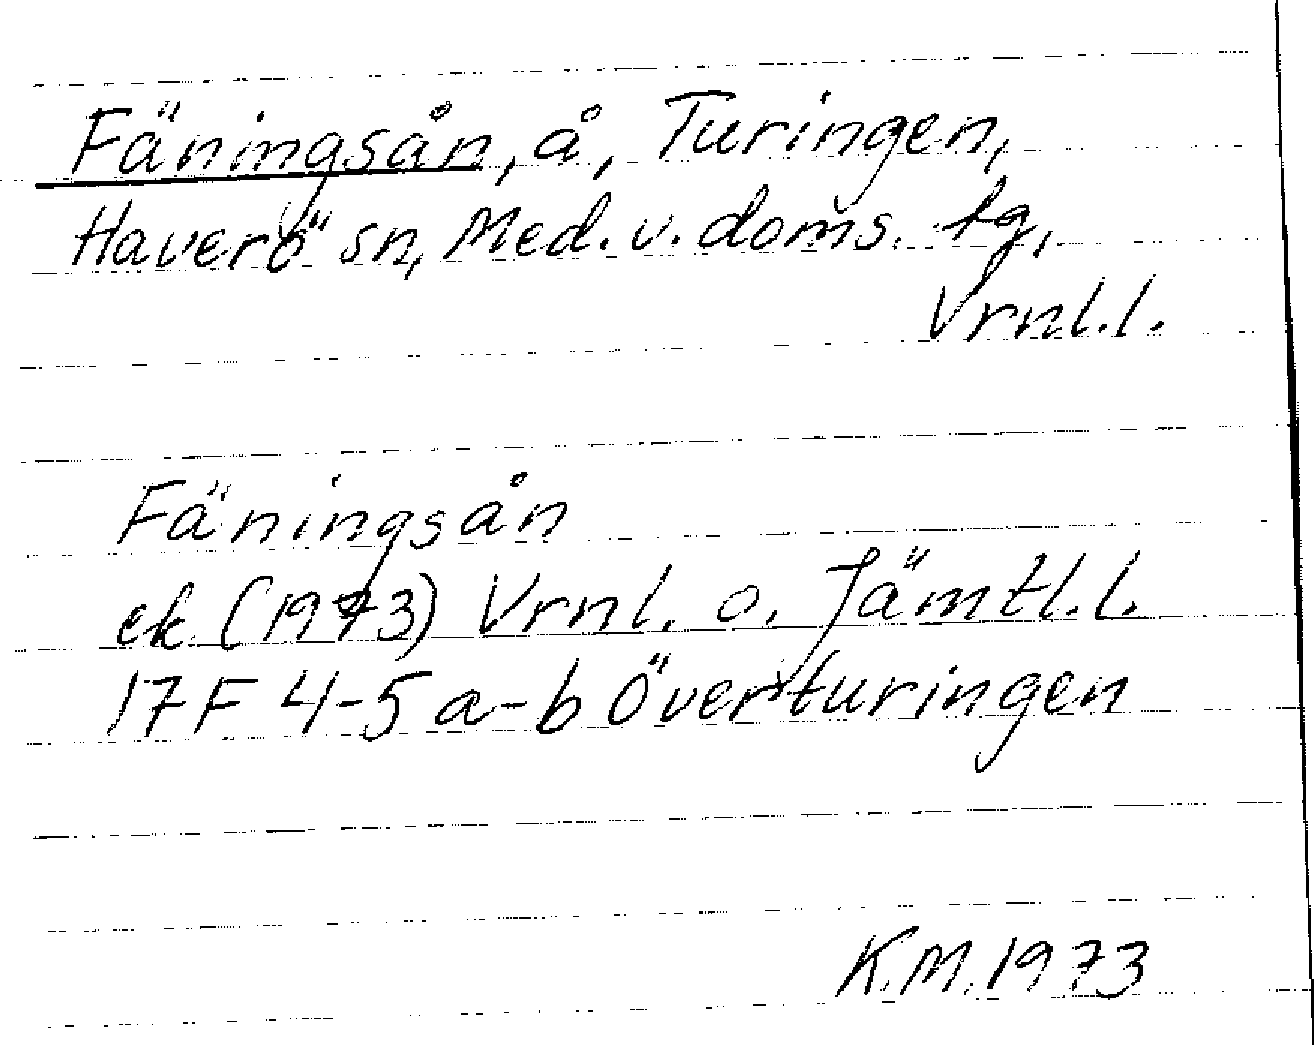 Fäningsån, å, Turingen,
Haverö sn, Med. v. doms. tg,
Vrnl.l.
Fäningsån
ek (1973) Vrnl. o. Jämtl.l.
17F 4-5 a-b Överturingen
K.M. 1973